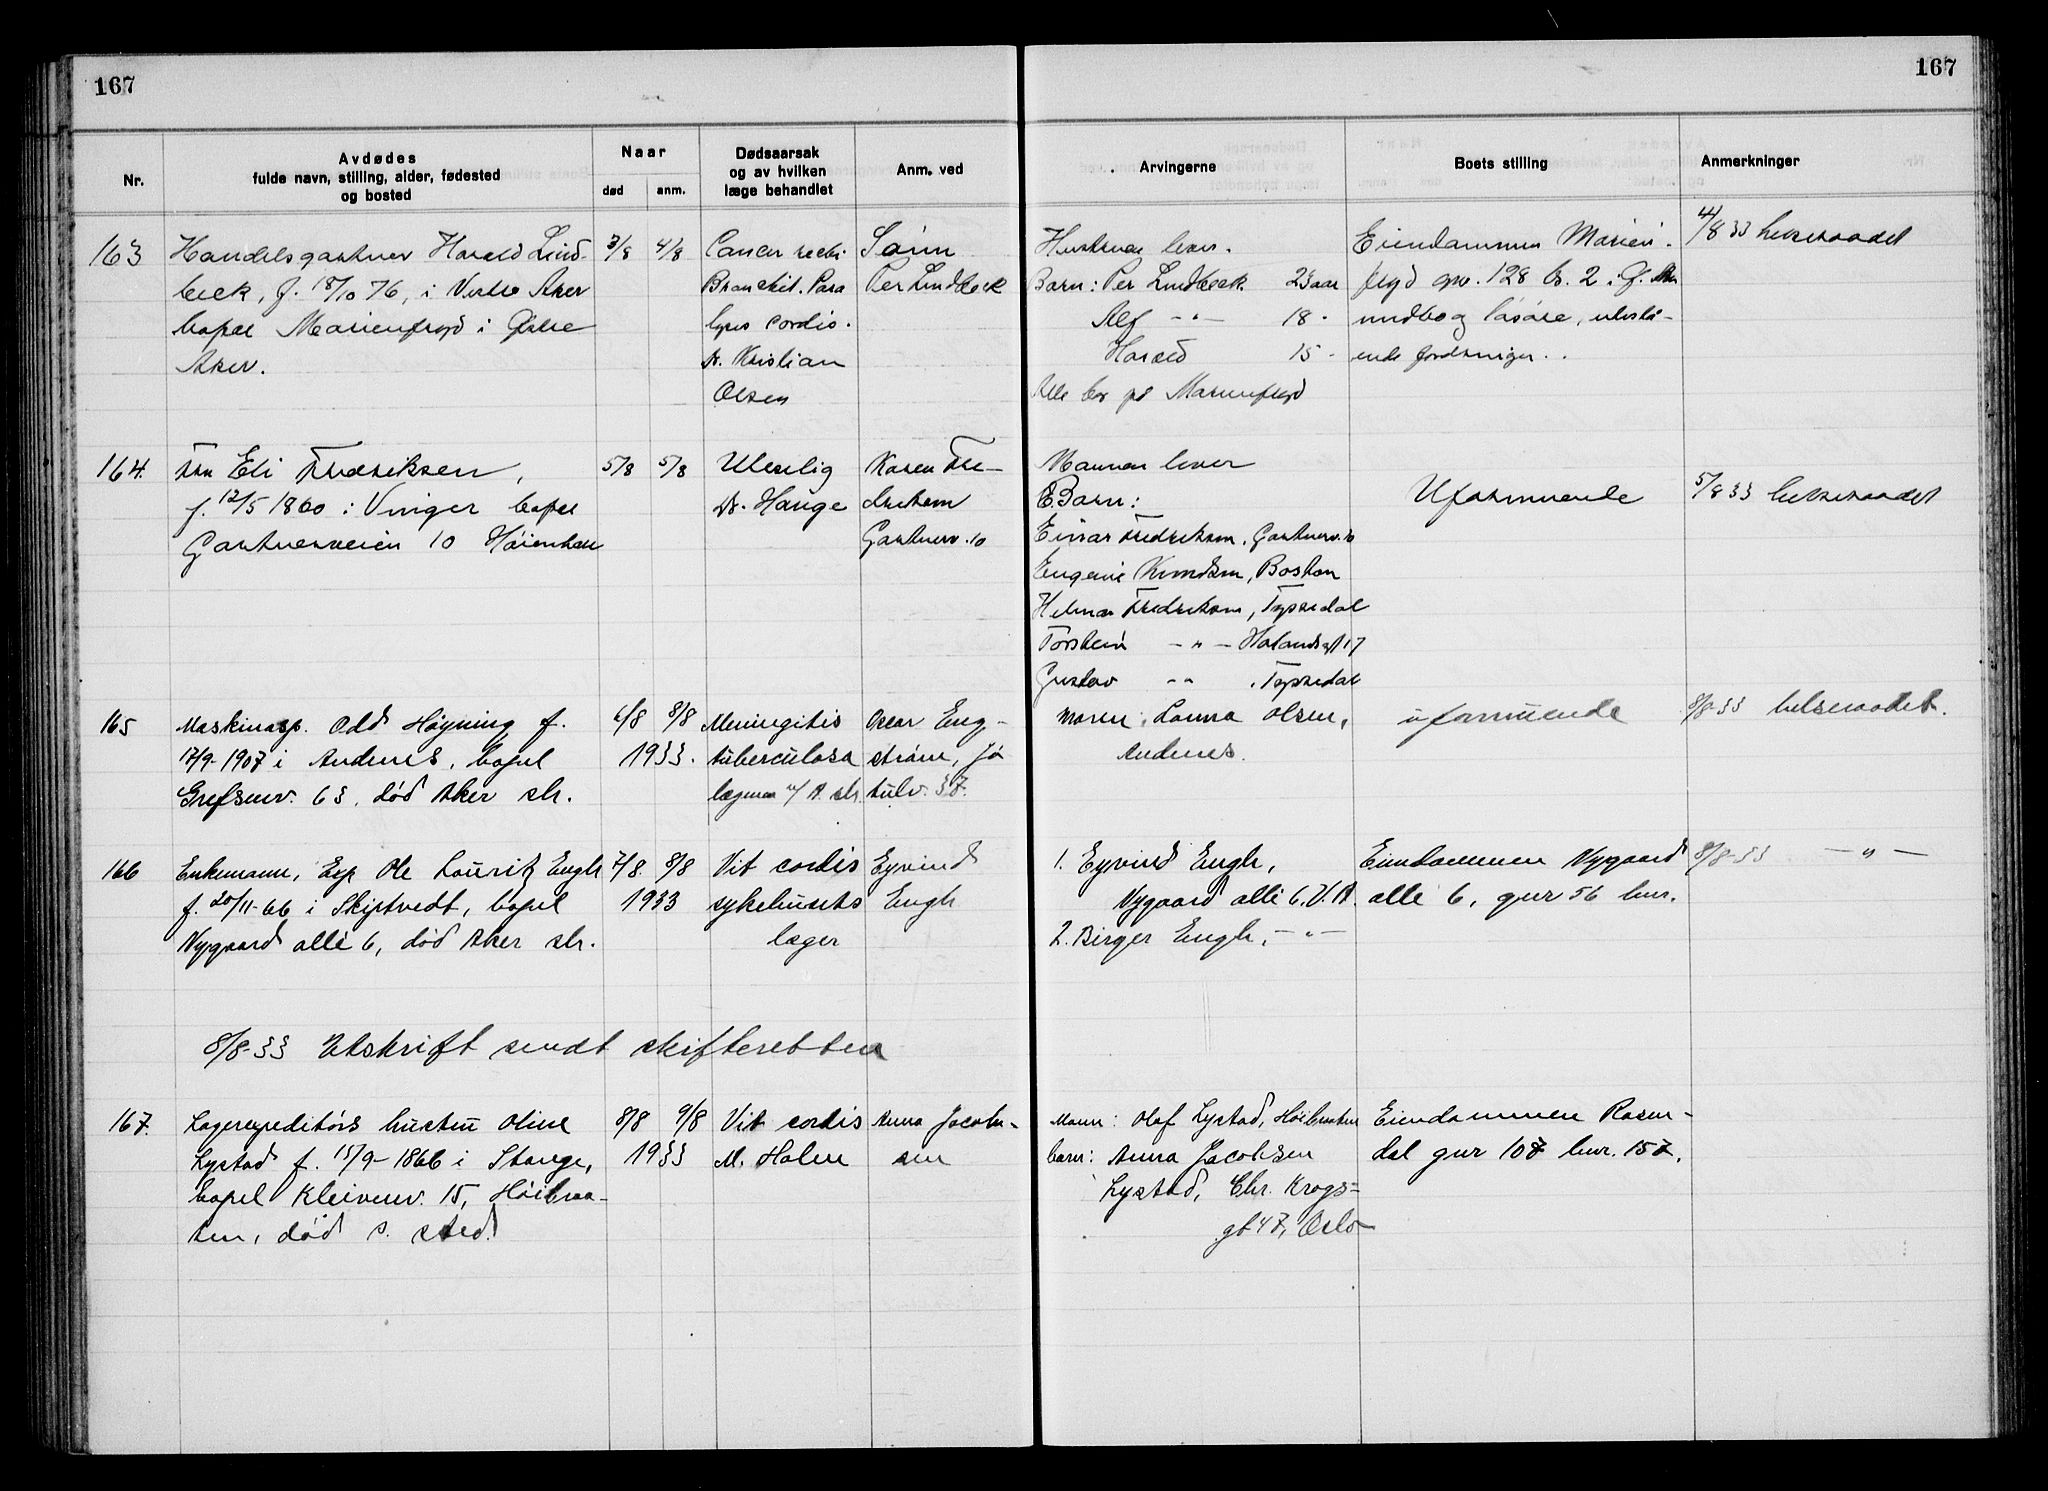 167
167
Nr.
Avdødes
fulde navn, stilling, alder, fødested
og bosted
Naar
død anm.
Dødsaarsak
og av hvilken
læge behandlet
Anm. ved
Arvingerne
Boets stilling
Anmerkninger
163 Handelsgartner Harald Lind-
beck, f. 18/10 76, i Vestre Aker
bopæl Marienfryd i Østre
Aker.
3/8 4/8
Cancer recti
Bronchit. Para
lyses cordis.
Dr. Kristian
Olsen
Sønn
Per Lindbeck
Hustruen lever.
Barn: Per Lindbeck 23 aar
Alf -"- 18 -
Harald 15 -
Alle bor på Marienfryd
Eiendommen Marien-
fryd gnr. 128 br. 2 i Ø. Aker
innbo og løsøre, utestå-
ende fordringer.
4/8 33 helseraadet
164. Fru Eli Fredriksen,
f. 12/5 1860 i Vinger bopæl
Gartnerveien 10 Høienhall
5/8 5/8
Uleselig
Dr. Hauge
Karen Fre-
driksen
Gartnerv. 10
Mannen lever
Barn:
Einar Fredriksen, Gartnerv. 10
Eugenie Knudsen, Boston
Helmar Fredriksen, Tyssedal
Torstein -"-
Gustav -"- , Tyssedal
Uformuende
5/8 33 helseraadet
165 Maskinasp. Odd Høyning f.
17/9-1907 i Andenes, bopel
Grefsenv. 63, død Aker sh.
4/8 8/8
1933.
Meningitis
tuberculosa
lægene v/ A. sh.
Oscar Eng-
strøm, Jø
tulv. 37.
Moren: Laura Olsen,
Andenes.
uformuende
8/8-33 helseraadet.
166 Enkemann, Exp Ole Lauritz Engh
f. 20/11-66 i Skiptvedt, bopel
Nygaard allé 6, død Aker sh.
7/8. 8/8
1933
Vit cordis
sykehusets
læger
Eyvind
Engh
1. Eyvind Engh,
Nygaard allé 6, V. A.
2. Birger Engh, -"-
Eiendommen Nygaard
allé 6, gnr 56 bnr.
8/8-33 -"-
8/8-33 Utskrift sendt skifteretten
167. Lagerexpeditørs hustru Oline
Lystad f. 15/9-1866 i Stange,
bopel Kleivenv. 15, Høibraa-
ten, død s. sted.
8/8 9/8
1933
Vit cordis
M. Holm
Anna Jacob-
sen
Mann: Olaf Lystad, Høibraaten
barn: Anna Jacobsen
Lystad, Chr. Krogs-
gt 47, Oslo
Eiendommen Rosen-
dal gnr 107 bnr. 157.